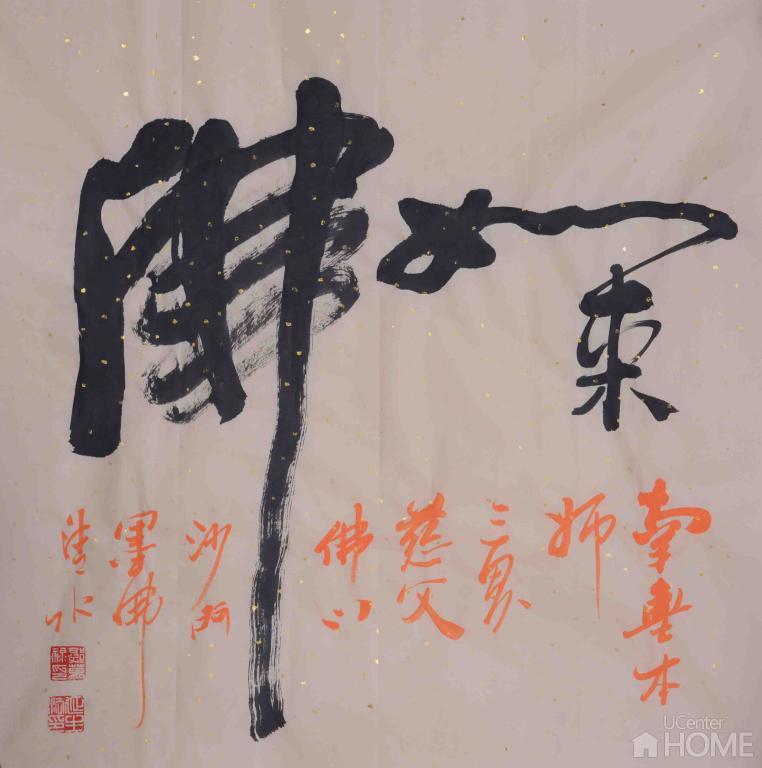 如来
佛
南無本
师
三界
慈父
佛
沙门
墨佛
清水
UCenter
HOME